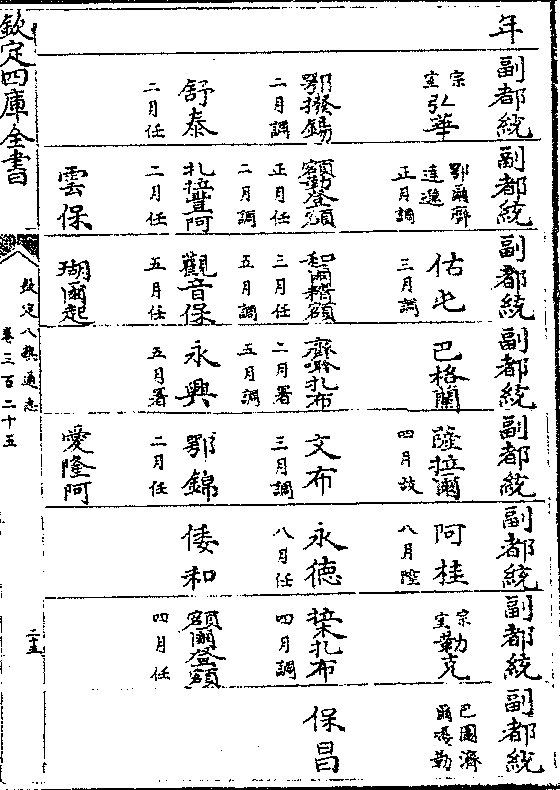 年
副都統
副都統
副都統
副都統
副都統
副都統
副都統
副都統
宗室弘華
鄂爾齊達遜
正月調
佑屯
三月調
巴格蘭
薩拉爾
四月故
阿桂
八月陞
宗室勒克
巴圖濟爾噶勒
鄂撥錫
二月調
額勒登額
正月任
二月調
和爾精額
三月任
五月調
扎布
二月署
五月調
文布
三月調
永德
八月任
扎布
四月調
保昌
舒泰
二月任
扎拉豐阿
二月任
觀音保
五月任
永興
五月署
鄂錦
二月任
倭和
額爾登額
四月任
雲保
瑚爾起
愛隆阿
欽定四庫全書
欽定八旗通志
卷三百二十五
二十五